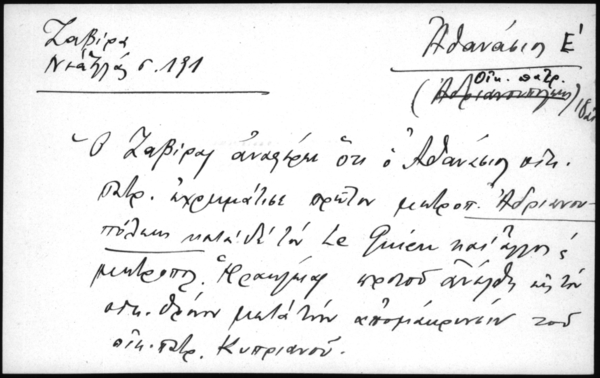 Ζαβίρα
Ν. Ἑλλάς σ. 191
Ἀθανάσιος Ε΄
Οἰκ. πατρ.
(Ἀδριανουπόλεως)
Ὁ Ζαβίρας ἀναφέρει ὅτι ὁ Ἀθανάσιος οἰκ.
πατρ. ἐχρημάτισε πρῶτον μητροπ. Ἀδριανου-
πόλεως κατὰ δὲ τὸν Le Quien καὶ ἄλλους
μητροπ. Ἡρακλείας προτοῦ ἀνέλθῃ εἰς τὸν
οἰκ. θρόνον μετὰ τὴν ἀπομάκρυνσιν τοῦ
οἰκ. πατρ. Κυπριανοῦ.